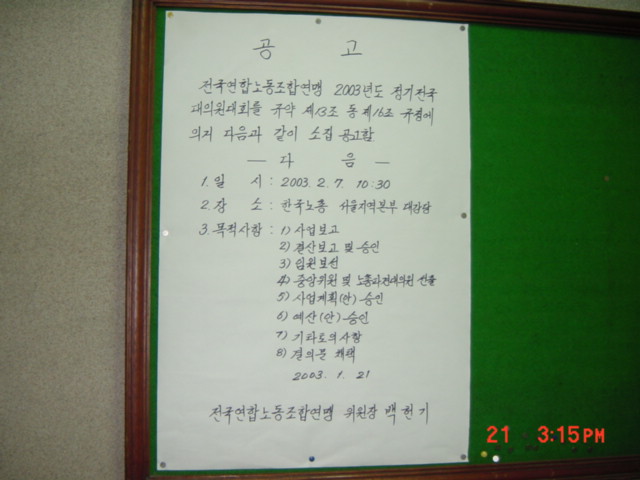 공 고
전국연합노동조합연맹 2003년도 정기전국
대의원대회를 규약 제13조 동 제16조 규정에
의거 다음과 같이 소집 공고함
— 다 음 —
1. 일 시 : 2003. 2. 7. 10:30
2. 장 소 : 한국노총 서울지역본부 대강당
3. 목적사항 : 1) 사업보고
2) 결산보고 및 승인
3) 임원보선
4) 중앙위원 및 노총파견대의원 선출
5) 사업계획(안) 승인
6) 예산(안) 승인
7) 기타토의사항
8) 결의문 채택
2003. 1. 21
전국연합노동조합연맹 위원장 백헌기
21 3:15PM